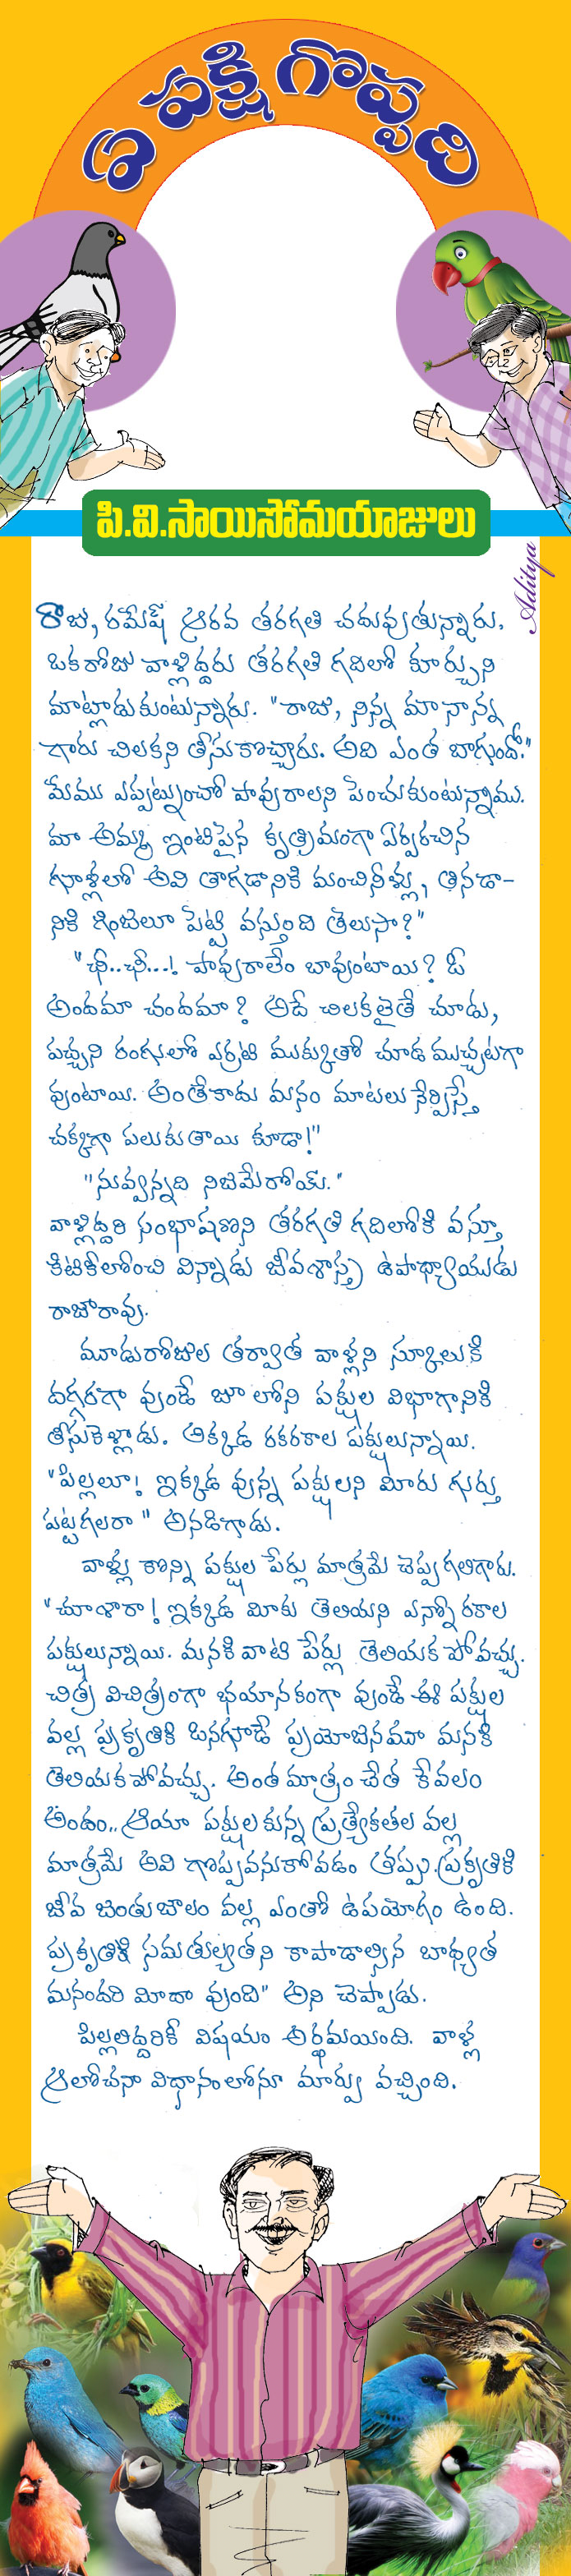 ఏ పక్షి గొప్పది
పి.వి.సాయిసోమయాజులు
Aditya
రాజు, రమేష్ ఆరవ తరగతి చదువుతున్నారు.
ఒకరోజు వాళ్లిద్దరు తరగతి గదిలో కూర్చుని
మాట్లాడుకుంటున్నారు. "రాజు, నిన్న మా నాన్న
గారు చిలకని తీసుకొచ్చారు. అది ఎంత బాగుందో."
మేము ఎప్పట్నుంచో పావురాలని పెంచుకుంటున్నాము.
మా అమ్మ ఇంటిపైన కృత్రిమంగా ఏర్పరచిన
గూళ్లలో అవి తాగడానికి మంచినీళ్లు, తినడా-
నికి గింజలూ పెట్టి వస్తుంది తెలుసా?"
"ఛీ..ఛీ...! పావురాలేం బావుంటాయి? ఓ
అందమా చందమా? అదే చిలకలైతే చూడు,
పచ్చని రంగులో ఎర్రటి ముక్కుతో చూడ ముచ్చటగా
వుంటాయి. అంతేకాదు మనం మాటలు నేర్పిస్తే
చక్కగా పలుకుతాయి కూడా!"
"నువ్వన్నది నిజమేరోయ్."
వాళ్లిద్దరి సంభాషణని తరగతి గదిలోకి వస్తూ
కిటికీలోంచి విన్నాడు జీవశాస్త్ర ఉపాధ్యాయుడు
రాజారావు.
మూడురోజుల తర్వాత వాళ్లని స్కూలుకి
దగ్గరగా వుండే జూ లోని పక్షుల విభాగానికి
తీసుకెళ్లాడు. అక్కడ రకరకాల పక్షులున్నాయి.
"పిల్లలూ! ఇక్కడ వున్న పక్షులని మీరు గుర్తు
పట్టగలరా" అనడిగాడు.
వాళ్లు కొన్ని పక్షుల పేర్లు మాత్రమే చెప్పగలిగారు.
"చూశారా! ఇక్కడ మీకు తెలియని ఎన్నో రకాల
పక్షులున్నాయి. మనకి వాటి పేర్లు తెలియక పోవచ్చు.
చిత్ర విచిత్రంగా భయానకంగా వుండే ఈ పక్షుల
వల్ల ప్రకృతికి ఒనగూడే ప్రయోజనమూ మనకి
తెలియకపోవచ్చు. అంత మాత్రం చేత కేవలం
అందం.. ఆయా పక్షులకున్న ప్రత్యేకతల వల్ల
మాత్రమే అవి గొప్పవనుకోవడం తప్పు. ప్రకృతికి
జీవ జంతుజాలం వల్ల ఎంతో ఉపయోగం ఉంది.
ప్రకృతికి సమతుల్యతని కాపాడాల్సిన బాధ్యత
మనందరి మీదా వుంది" అని చెప్పాడు.
పిల్లలిద్దరికీ విషయం అర్థమయింది. వాళ్ల
ఆలోచనా విధానంలోనూ మార్పు వచ్చింది.